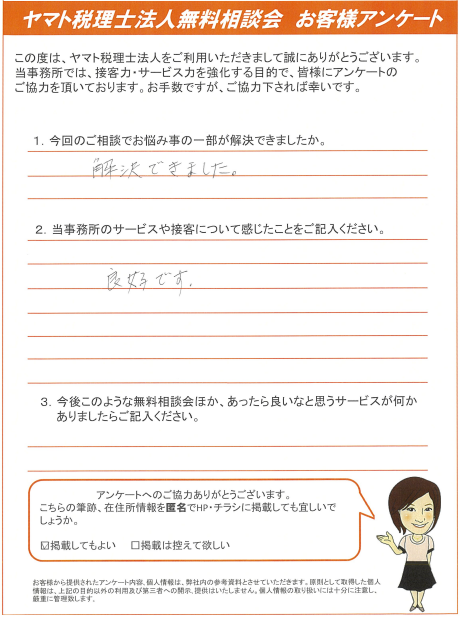 ヤマト税理士法人無料相談会　お客様アンケート
この度は、ヤマト税理士法人をご利用いただきまして誠にありがとうございます。
当事務所では、接客力・サービス力を強化する目的で、皆様にアンケートの
ご協力を頂いております。お手数ですが、ご協力下されば幸いです。
1．今回のご相談でお悩み事の一部が解決できましたか。
解決できました。
2．当事務所のサービスや接客について感じたことをご記入ください。
良好です．
3．今後このような無料相談会ほか、あったら良いなと思うサービスが何か
ありましたらご記入ください。
アンケートへのご協力ありがとうございます。
こちらの筆跡、在住所情報を匿名でHP・チラシに掲載しても宜しいで
しょうか。
☑掲載してもよい　☐掲載は控えて欲しい
お客様から提供されたアンケート内容、個人情報は、弊社内の参考資料とさせていただきます。原則として取得した個人
情報は、上記の目的以外の利用及び第三者への開示、提供はいたしません。個人情報の取り扱いには十分に注意し、
厳重に管理致します。